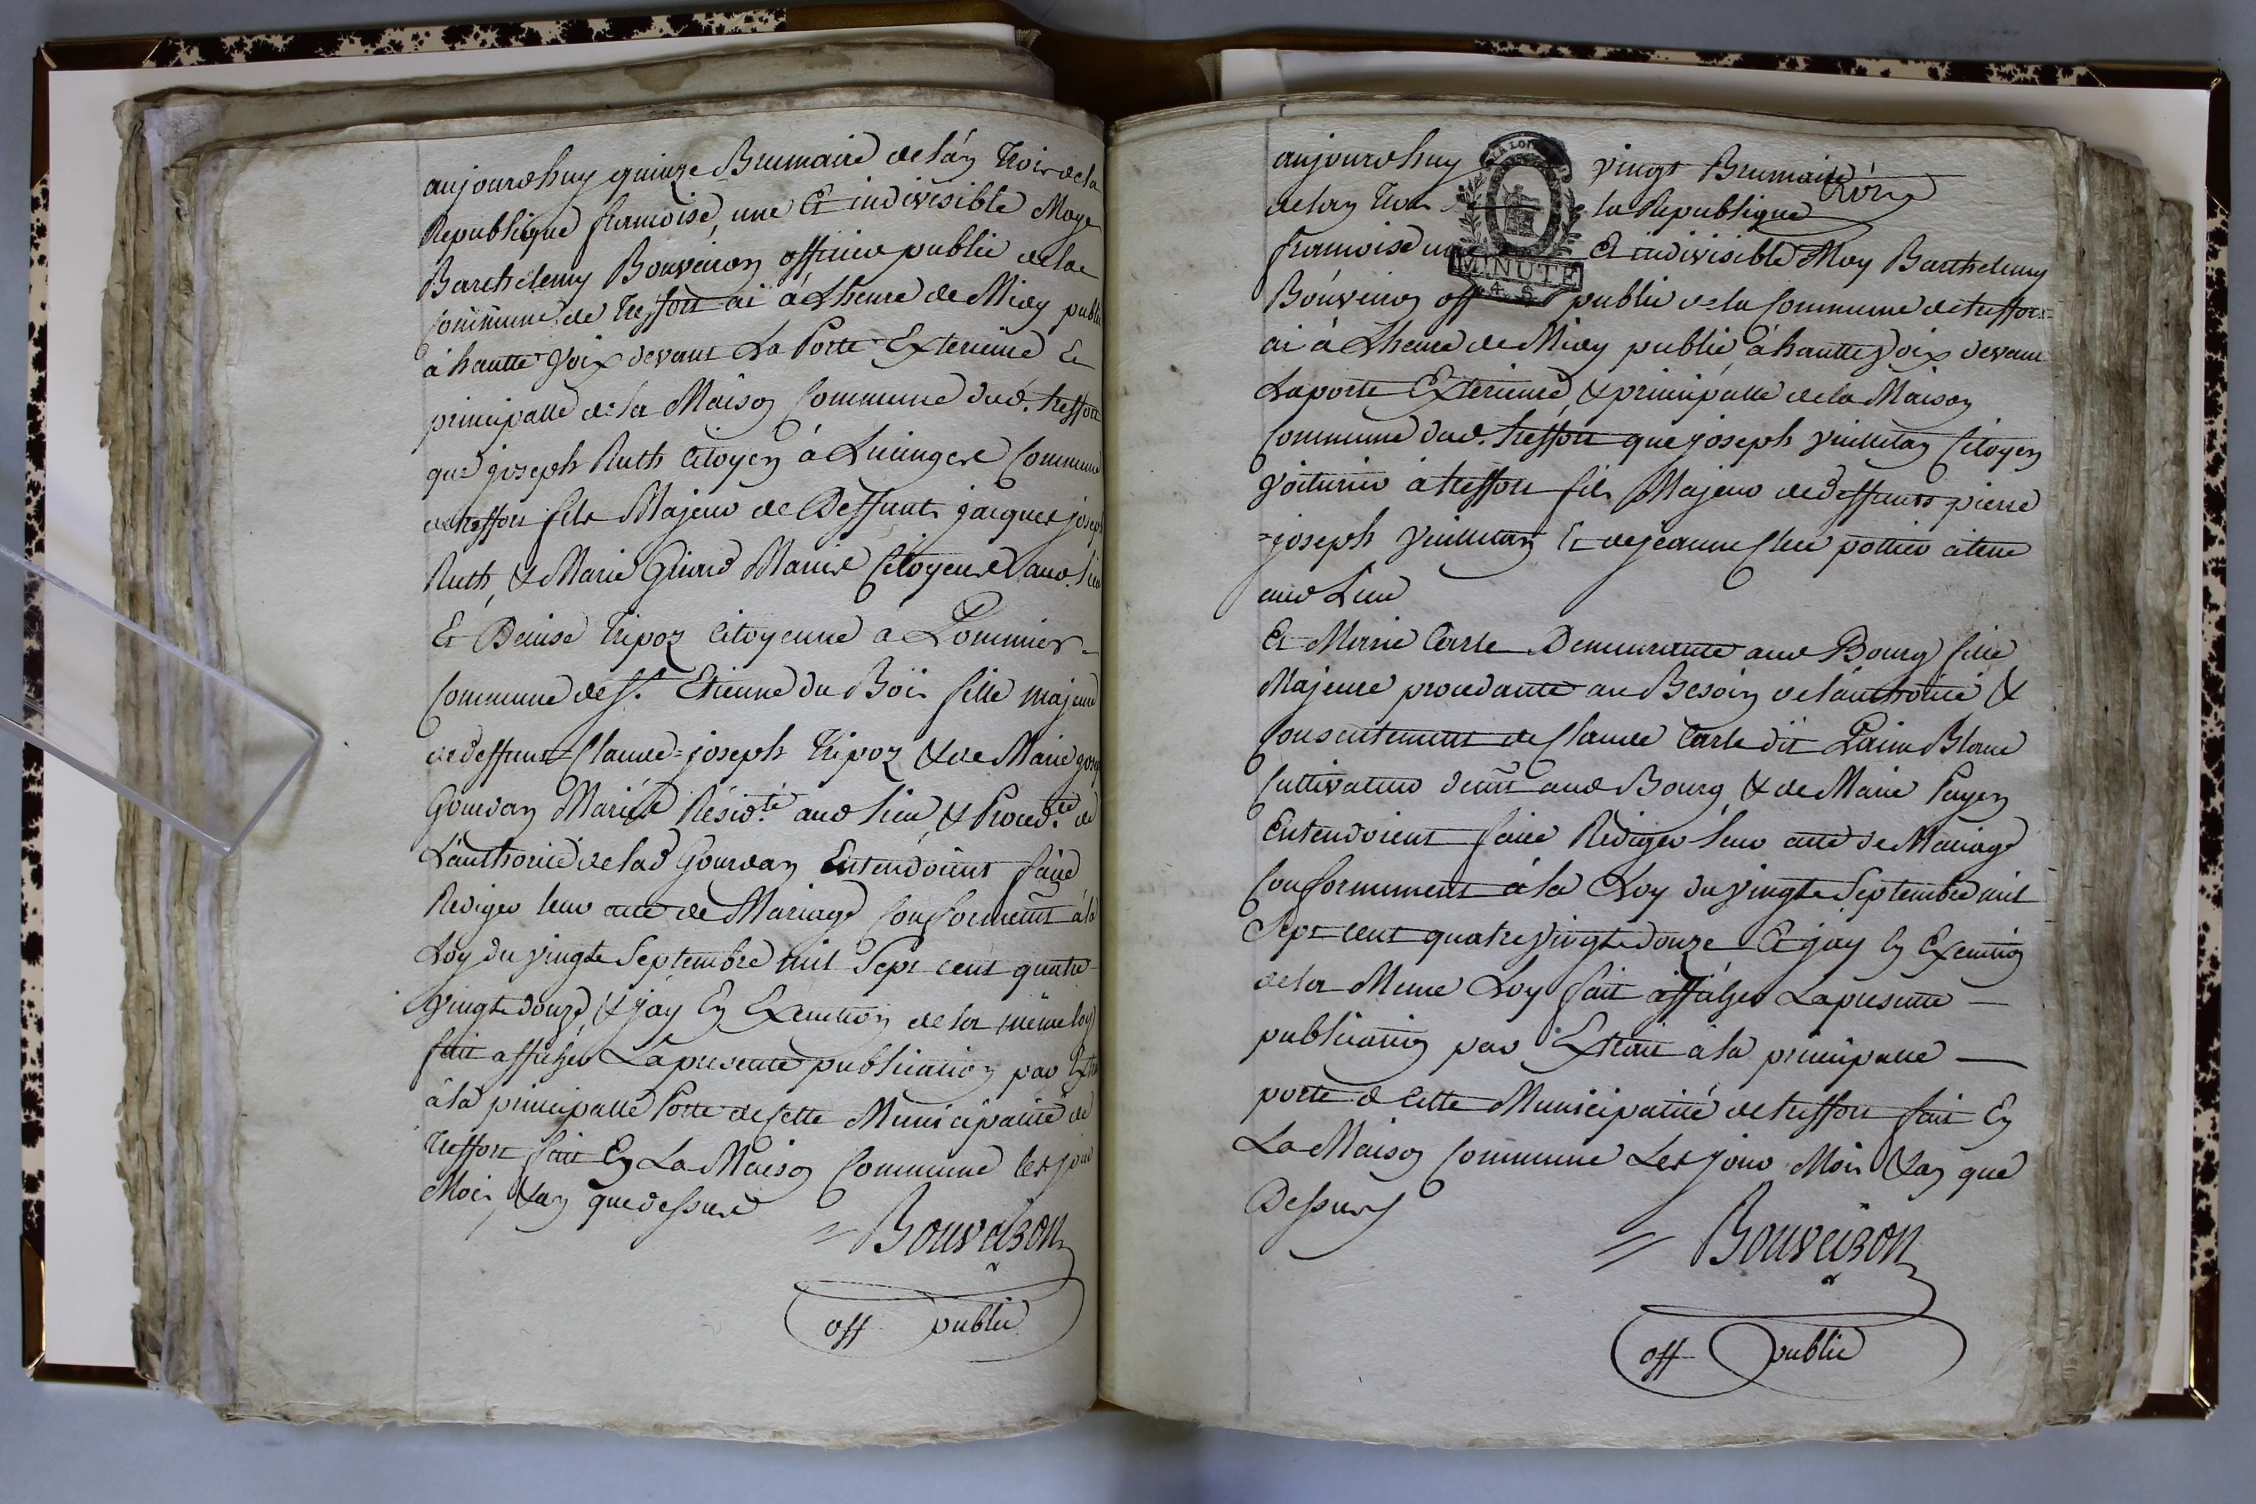 aujourdhuy quinze Brumaire de lan trois de la
Republique francoise, une Et indivisible Moy
Barthelemy Bouveiron officier public de la
Commune de treffort ai à Lheure de Midy public
à hautte voix devant La Porte Exterieure Et
principalle de la Maison Commune dud. treffort
que joseph Ruth Citoyen à Lucinges Commune
de treffort fils Majeur de Deffunts jacques joseph
Ruth, & Marie Girard Mariés Citoyens aud. lieu
Et Denise tripoz Citoyenne a Lommier
Commune de St. Etienne du Bois fille majeure
de deffunt Claude=joseph tripoz & de Marie jose
Gourdan Mariés Résidte. aud lieu, & Procedte. de
L'authorité de lad Gourdan Entendoient faire
Rediger leur acte de Mariage Conformemt à la
Loy du vingt Septembre mil Sept cent quatre
vingt douze, & jay En Execution de la même loy
fait afficher La presente publication par Extrait
à la principalle Porte de Cette Municipalité de
treffort fait En La Maison Commune les jour
Mois, & an que dessus
Bouveiron
off public
LA LOI
MINUTE
4. S
aujourdhuy vingt Brumaire
de lan trois de la Republique
francoise une Et indivisible Moy Barthelemy
Bouveiron off public de la Commune de treffort
ai à Lheure de Midy publié à hautte voix devant
La porte Exterieure, & principalle de la Maison
Commune dud. treffort que joseph vuilletan Citoyen
voiturier a treffort fils Majeur de deffunts pierre
=joseph vuilletan Et de jeanne Cleré pottier
aud Lieu
Et Marie Carle Demeurante aud Bourg fille
Majeure procedante au Besoin de l'authorité &
Consentement de Claude Carle dit Pain Blanc
Cultivateur demt aud Bourg, & de Marie Payen
Entendoient faire Rediger leur acte de Mariage
Conformement à la Loy du vingt Septembre mil
Sept cent quatre vingt douze Et jay En Execution
de la Meme Loy fait afficher La presente
publication par Extrait à la principalle
porte de Cette Municipalité de treffort fait En
La Maison Commune Les jour Mois & an que
Dessus
Bouveiron
off public